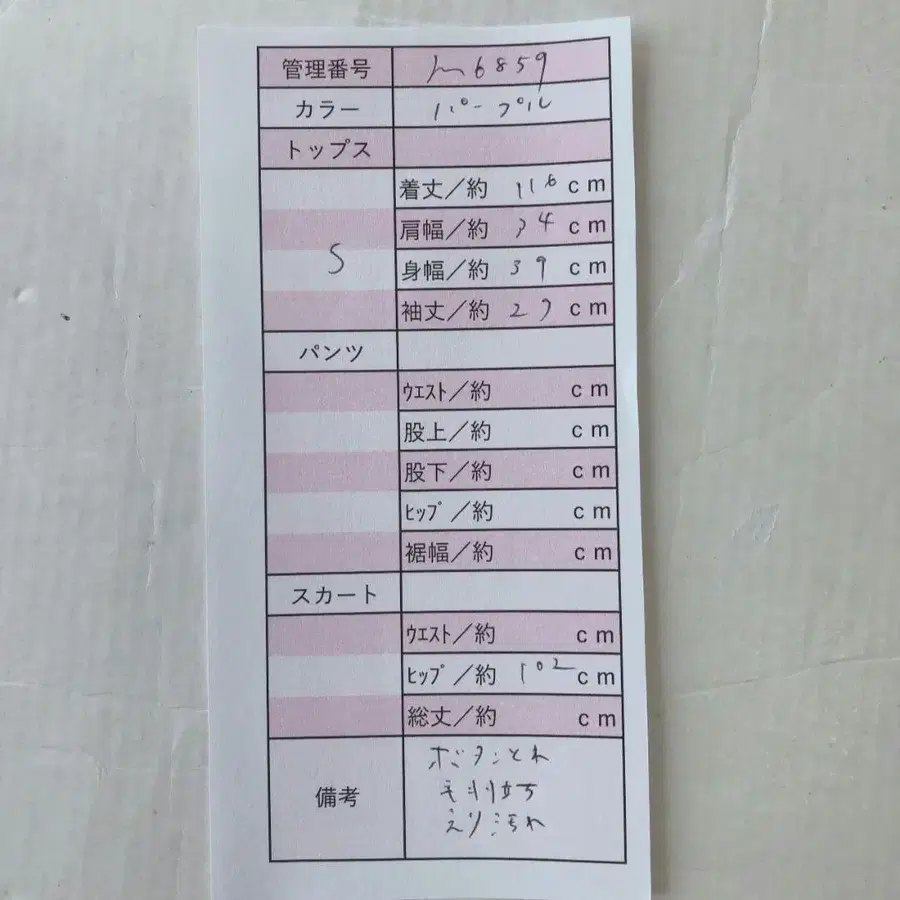 管理番号 m6859
カラー パープル
トップス
S
着丈/約 116 cm
肩幅/約 34 cm
身幅/約 39 cm
袖丈/約 27 cm
パンツ
ウエスト/約 cm
股上/約 cm
股下/約 cm
ヒップ/約 cm
裾幅/約 cm
スカート
ウエスト/約 cm
ヒップ/約 102 cm
総丈/約 cm
備考
ボタンとれ
毛羽立ち
えり汚れ